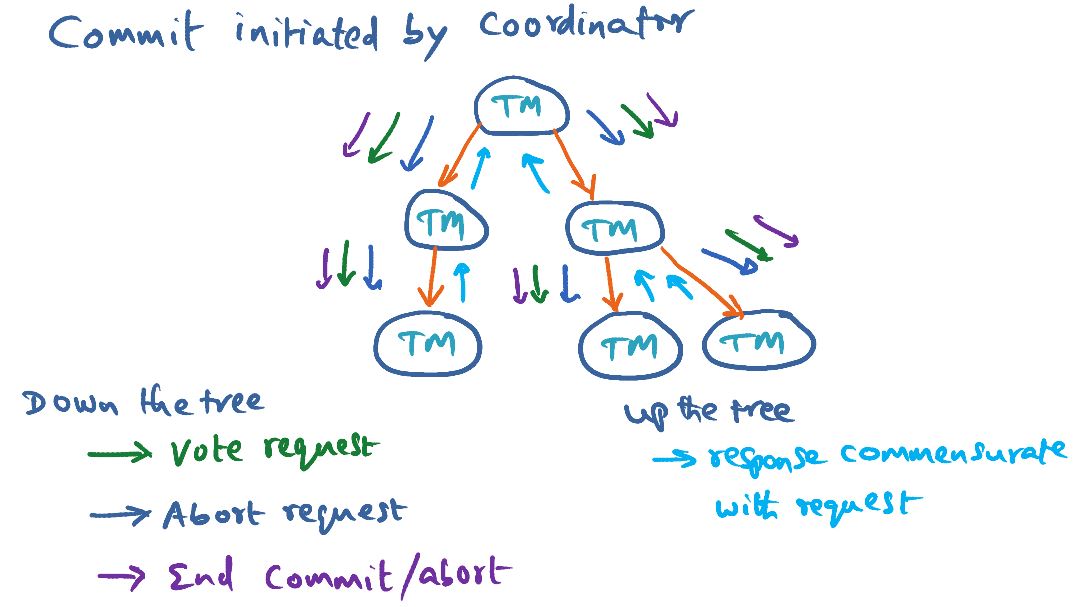 Commit initiated by Coordinator
TM
TM
TM
TM
TM
TM
Down the tree
→ Vote request
→ Abort request
→ End Commit/abort
up the tree
→ response commensurate
with request